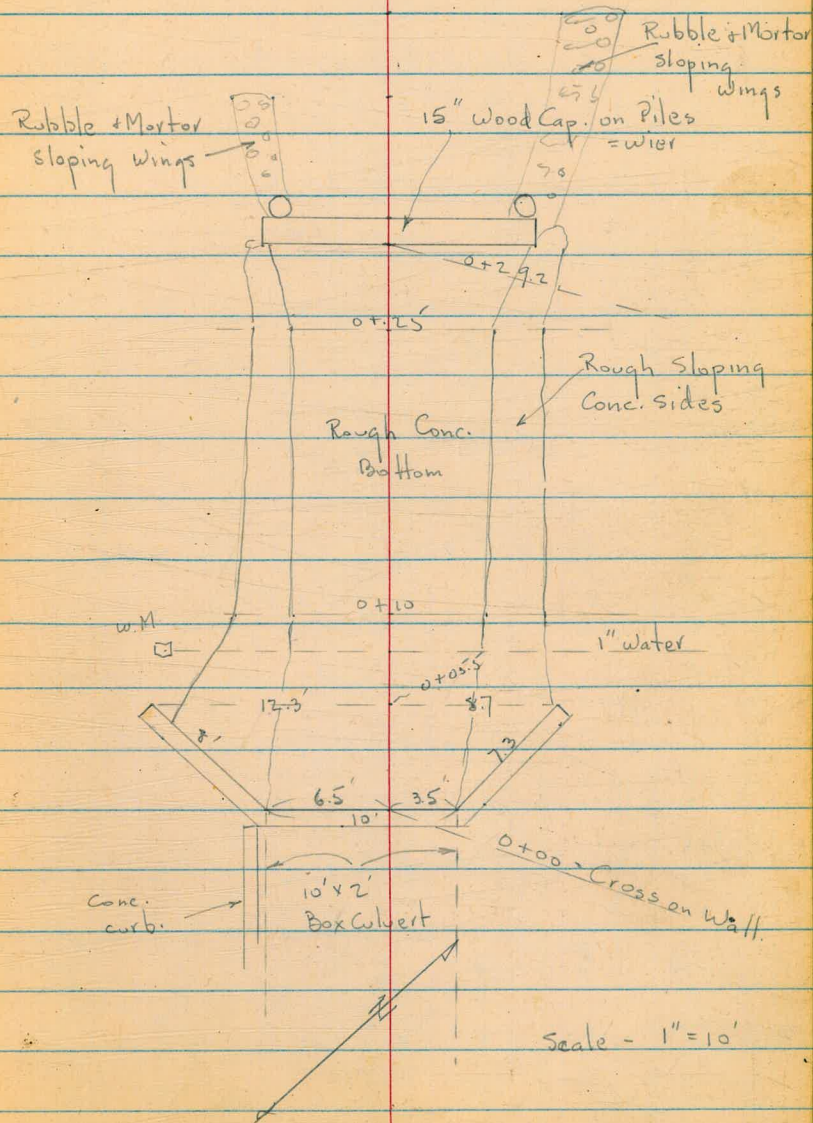 Rubble & Mortor
sloping
wings
Rubble & Mortor
sloping wings
15" Wood Cap. on Piles
= wier
0+29.2
0+25
Rough Sloping
Conc. Sides
Rough Conc.
Bottom
0+10
W.M
1" water
0+05.5'
12.3'
8.7
8'
7.3
6.5'
3.5'
10'
0+00 = Cross on Wall.
10' x 2'
Box Culvert
Conc.
curb.
N
Scale - 1" = 10'